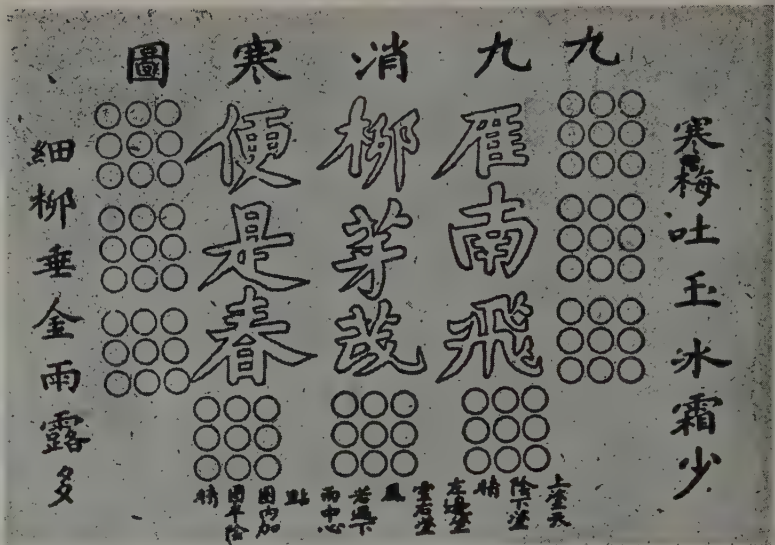 九九消寒圖
寒梅吐玉冰霜少
雁南飛
柳芽茂
便是春
細柳垂金雨露多
上塗天
陰下塗
晴
左邊塗
雲右塗
風
若遇下
雨中心
點
圈内加
圈半陰
晴